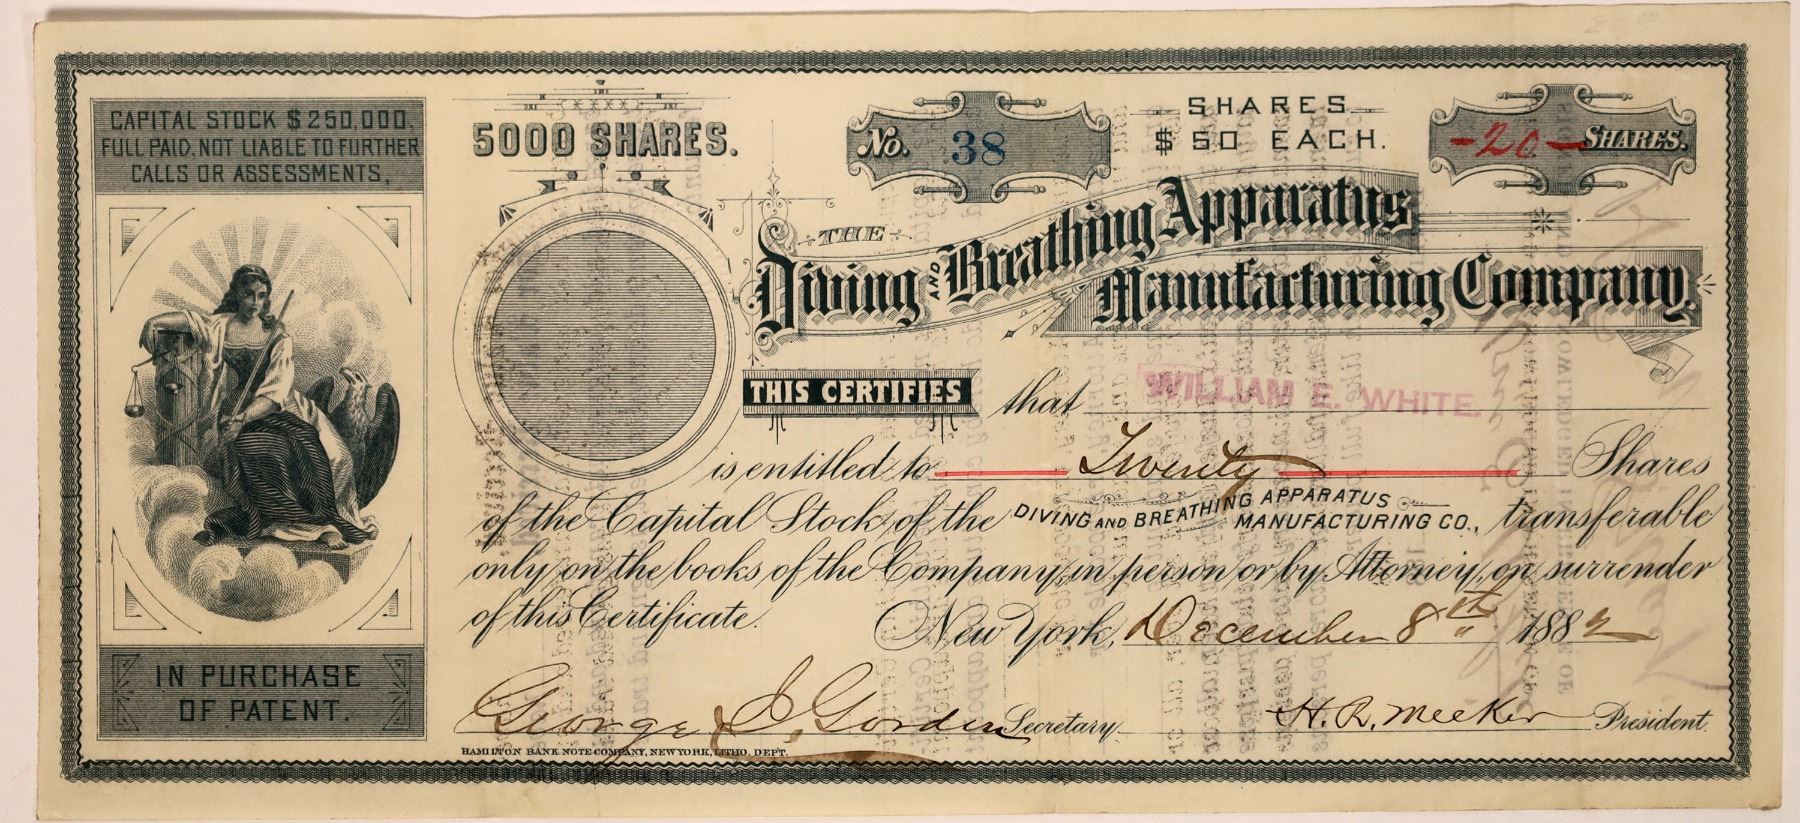 CAPITAL STOCK $250,000.
FULL PAID, NOT LIABLE TO FURTHER
CALLS OR ASSESSMENTS,
IN PURCHASE
OF PATENT.
5000 SHARES.
No. 38
SHARES
$50 EACH.
-20- SHARES.
THE
Diving AND Breathing Apparatus
Manufacturing Company.
THIS CERTIFIES that WILLIAM E. WHITE.
is entitled to Twenty Shares
of the Capital Stock of the DIVING AND BREATHING APPARATUS MANUFACTURING CO., transferable
only on the books of the Company, in person or by Attorney, on surrender
of this Certificate. New York, December 8th 1882
George J. Gorden Secretary. H. R. Meeker President.
HAMILTON BANK NOTE COMPANY, NEW YORK, LITHO. DEPT.